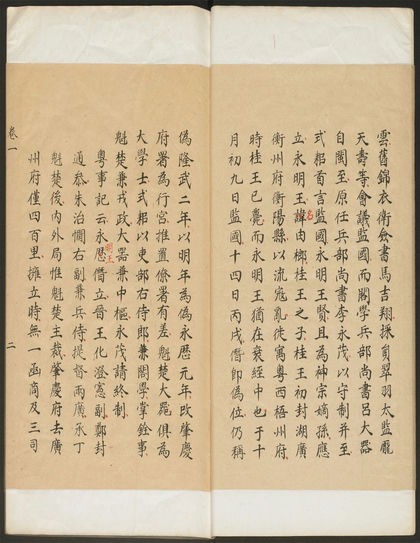 雲舊錦衣衛僉書馬吉翔採買翠羽太監龐
天壽等會議監國而閣學兵部尚書呂大器
自閩至原任兵部尚書李永茂以守制并至
式耜首言監國永明王賢且為神宗嫡孫應
立永明王諱由榔桂王之子桂王初封湖廣
名
衡州府衡陽縣以流寇亂徙寓粵西梧州府
時桂王已薨而永明王猶在衰絰中也于十
月初九日監國十四日丙戌僭即偽位仍稱
偽隆武二年以明年為偽永曆元年改肇慶
府署為行宮推置僚署有差魁楚大器俱為
大學士式耜以吏部右侍郎兼閣學掌銓事
魁楚兼戎政大器兼中樞永茂請終制
粵事記云永曆僭立晉王化澄憲副鄭封
明王
通叅朱治憪右副兼兵侍提督兩廣永丁
魁楚後內外局惟魁楚主裁肇慶府去廣
州府僅四百里擁立時無一函商及三司
卷一
二